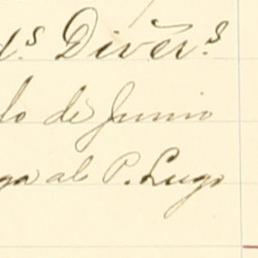 d.s Divērs
lo de Junio
ga al P. Lugo